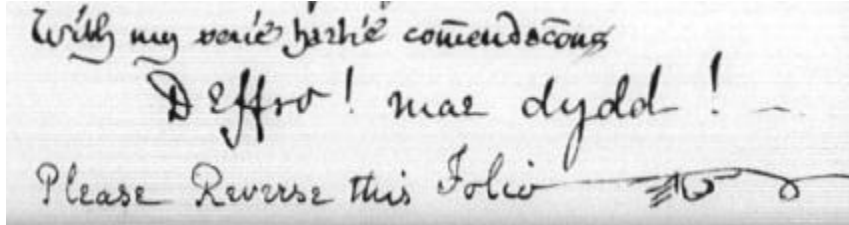 With my verie hartie comendacons
Deffro! mae dydd!
Please Reverse this Folio